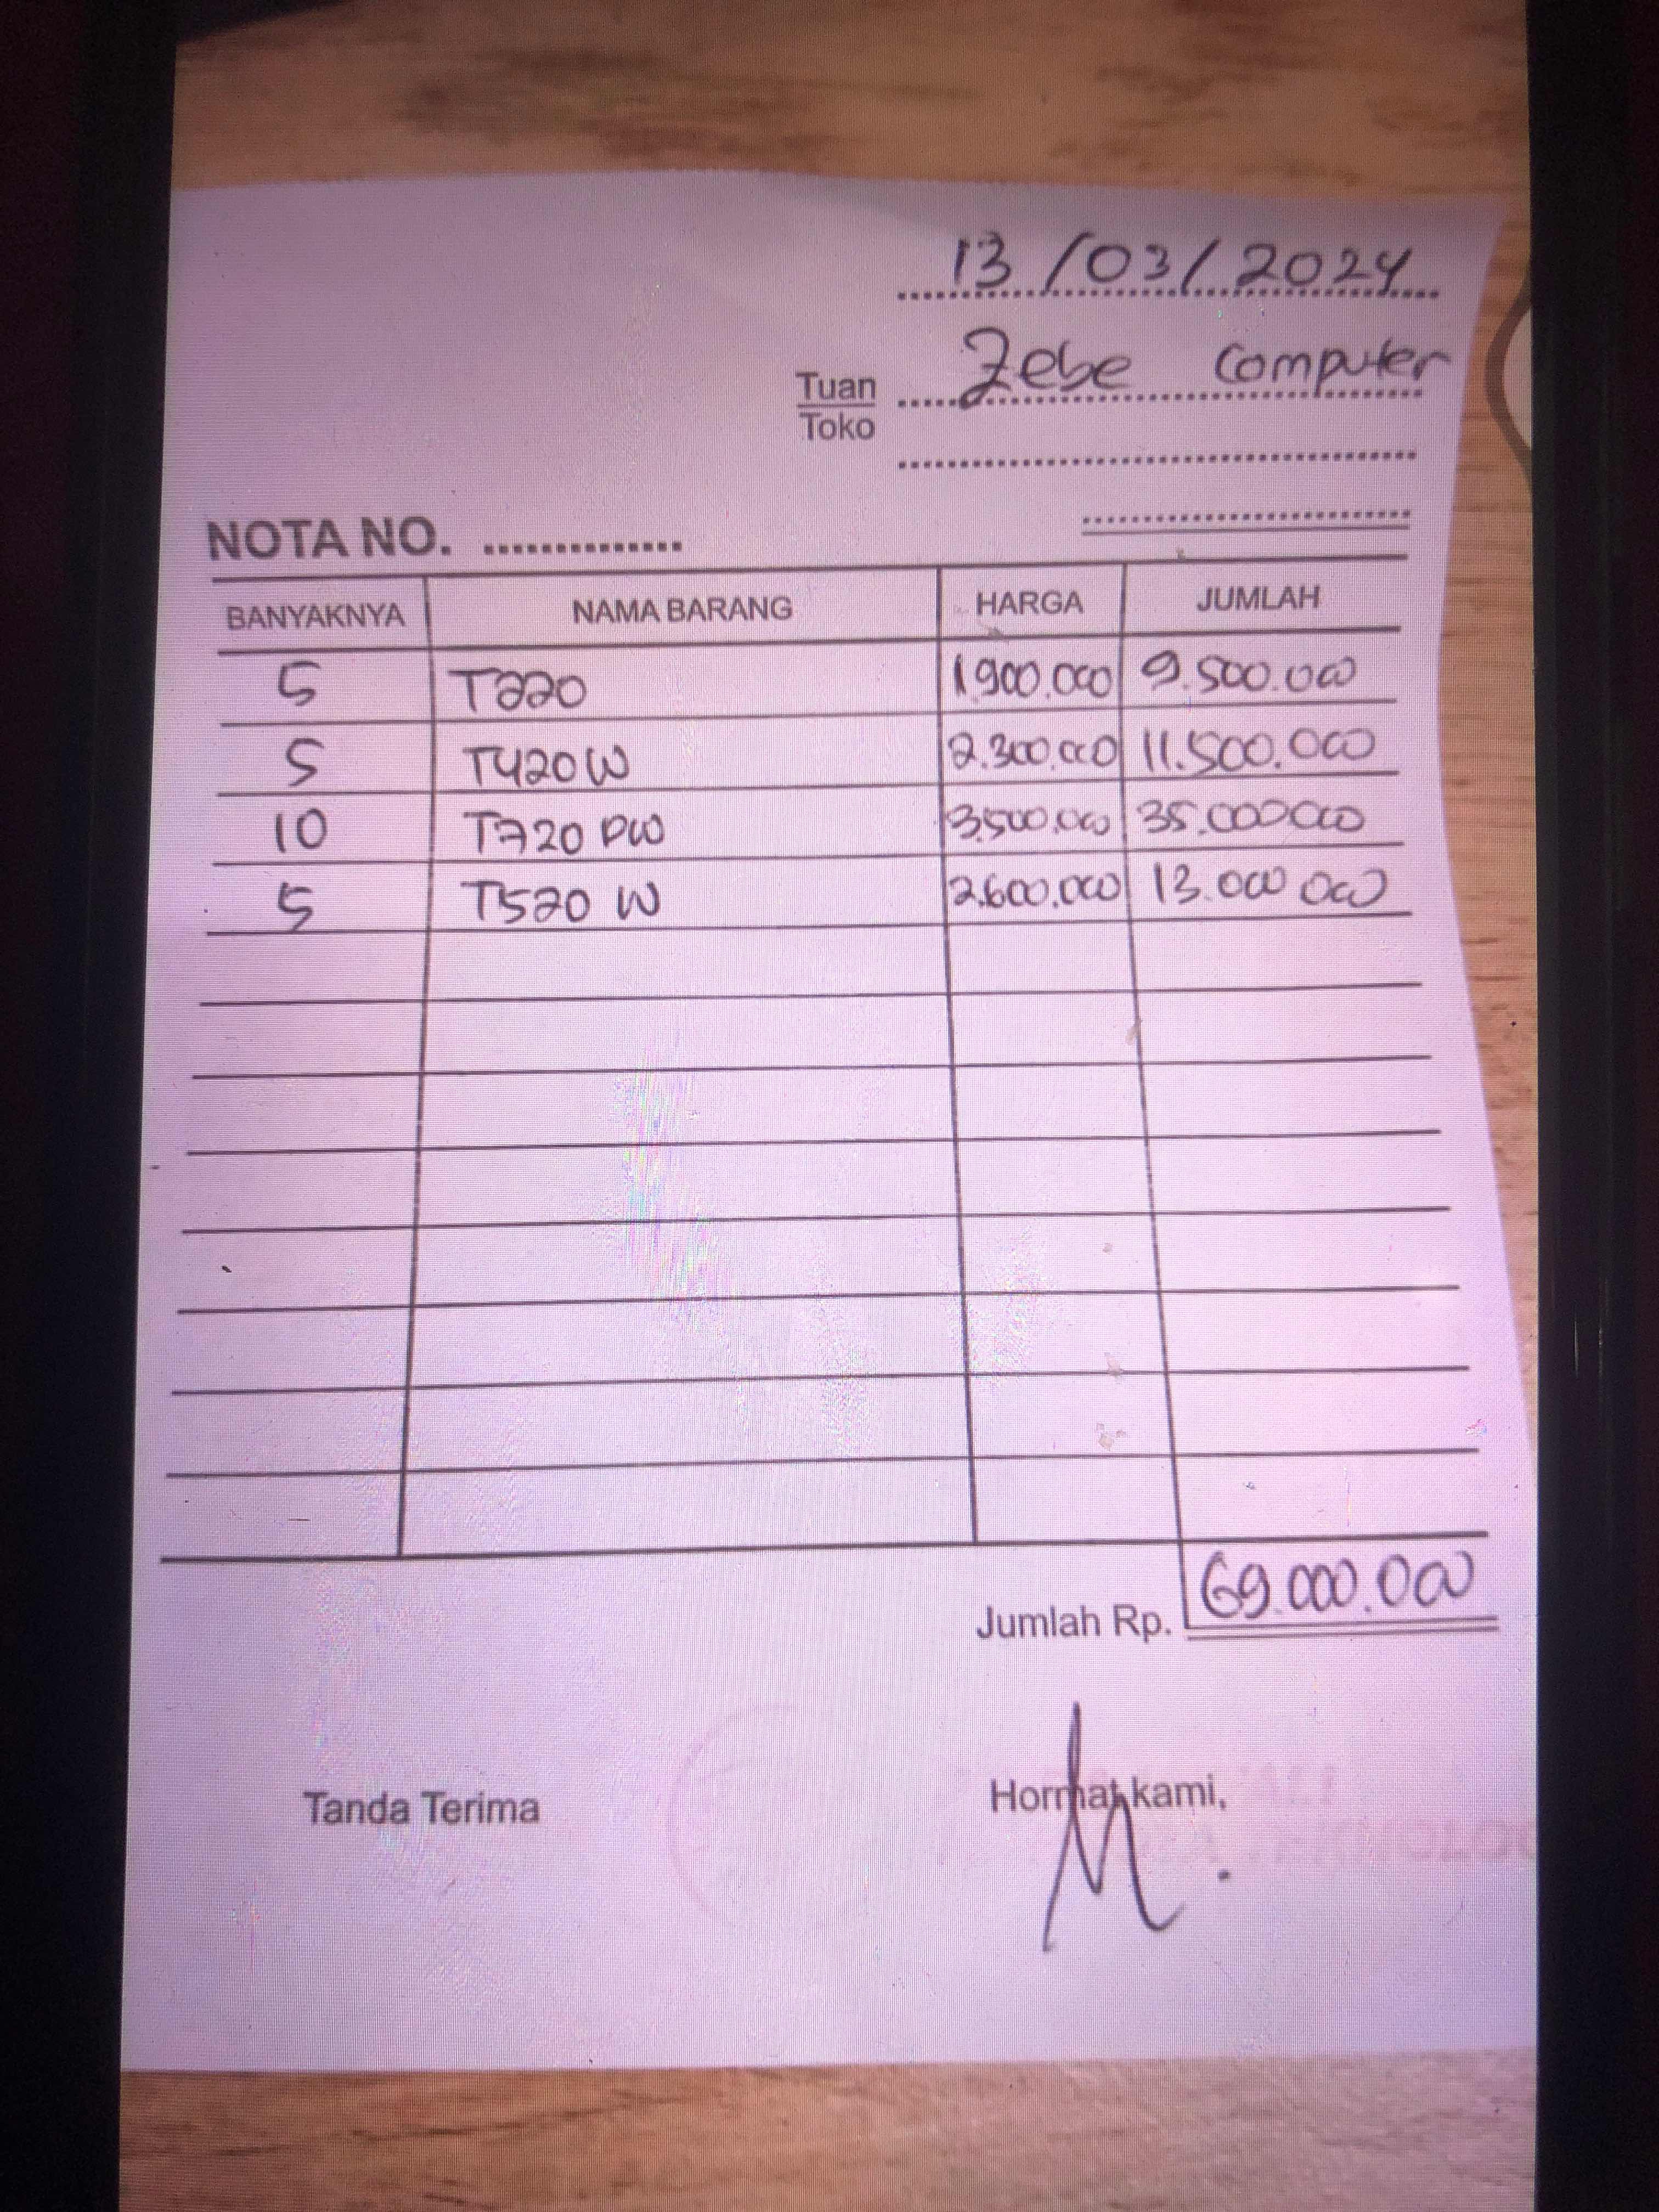 13/03/2024
Tuan Zebe Computer
Toko
NOTA NO. ..............
BANYAKNYA NAMA BARANG HARGA JUMLAH
5 T220 1.900.000 9.500.000
5 T420 W 2.300.000 11.500.000
10 T720 DW 3.500.000 35.000.000
5 T520 W 2.600.000 13.000.000
Jumlah Rp. 69.000.000
Tanda Terima Hormat kami,